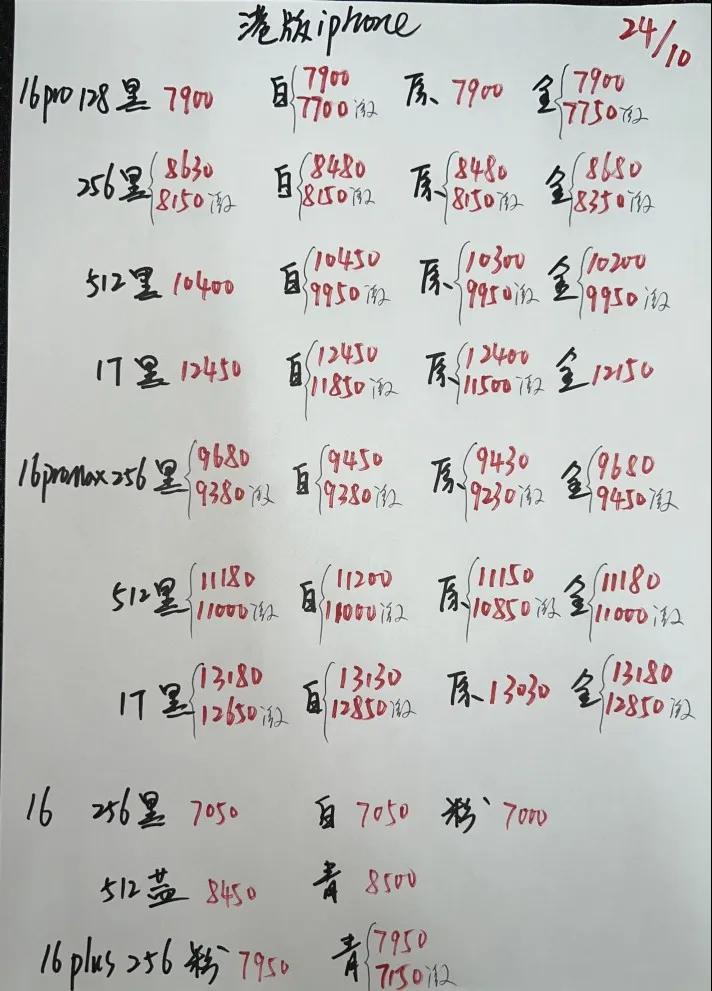 港版iphone 24/10
16pro 128 黑 7900 白 7900 7700激 原 7900 金 7900 7750激
256 黑 8630 8150激 白 8480 8150激 原 8480 8150激 金 8680 8350激
512 黑 10400 白 10450 9950激 原 10300 9950激 金 10200 9950激
1T 黑 12450 白 12450 11850激 原 12400 11500激 金 12150
16promax 256 黑 9680 9380激 白 9450 9380激 原 9430 9230激 金 9680 9450激
512 黑 11180 11000激 白 11200 11000激 原 11150 10850激 金 11180 11000激
1T 黑 13180 12650激 白 13130 12850激 原 13030 金 13180 12850激
16 256 黑 7050 白 7050 粉 7000
512 蓝 8450 青 8500
16plus 256 粉 7950 青 7950 7150激